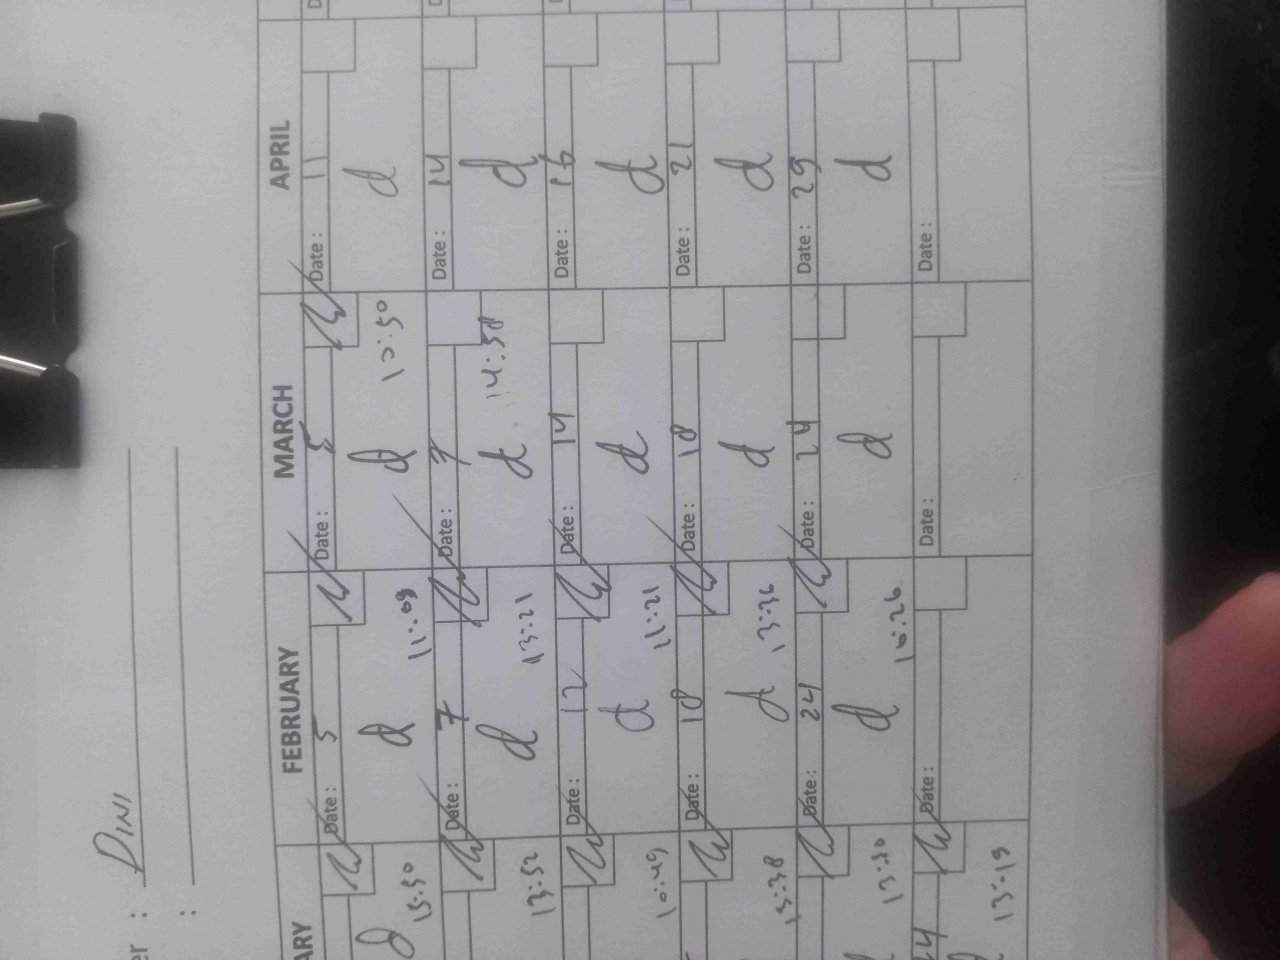 er : DINI
:
ARY FEBRUARY MARCH APRIL
Date : 5 Date : 5 Date : 11
d 15:50 d 11:09 d 10:50 d
Date : 7 Date : 7 Date : 14
13:52 d 13:21 d 14:58 d
Date : 12 Date : 14 Date : 16
10:49 d 11:21 d d
Date : 18 Date : 18 Date : 21
d 13:36 d d
Date : 24 Date : 24 Date : 29
d 10:26 d d
24 Date : Date : Date :
13:19